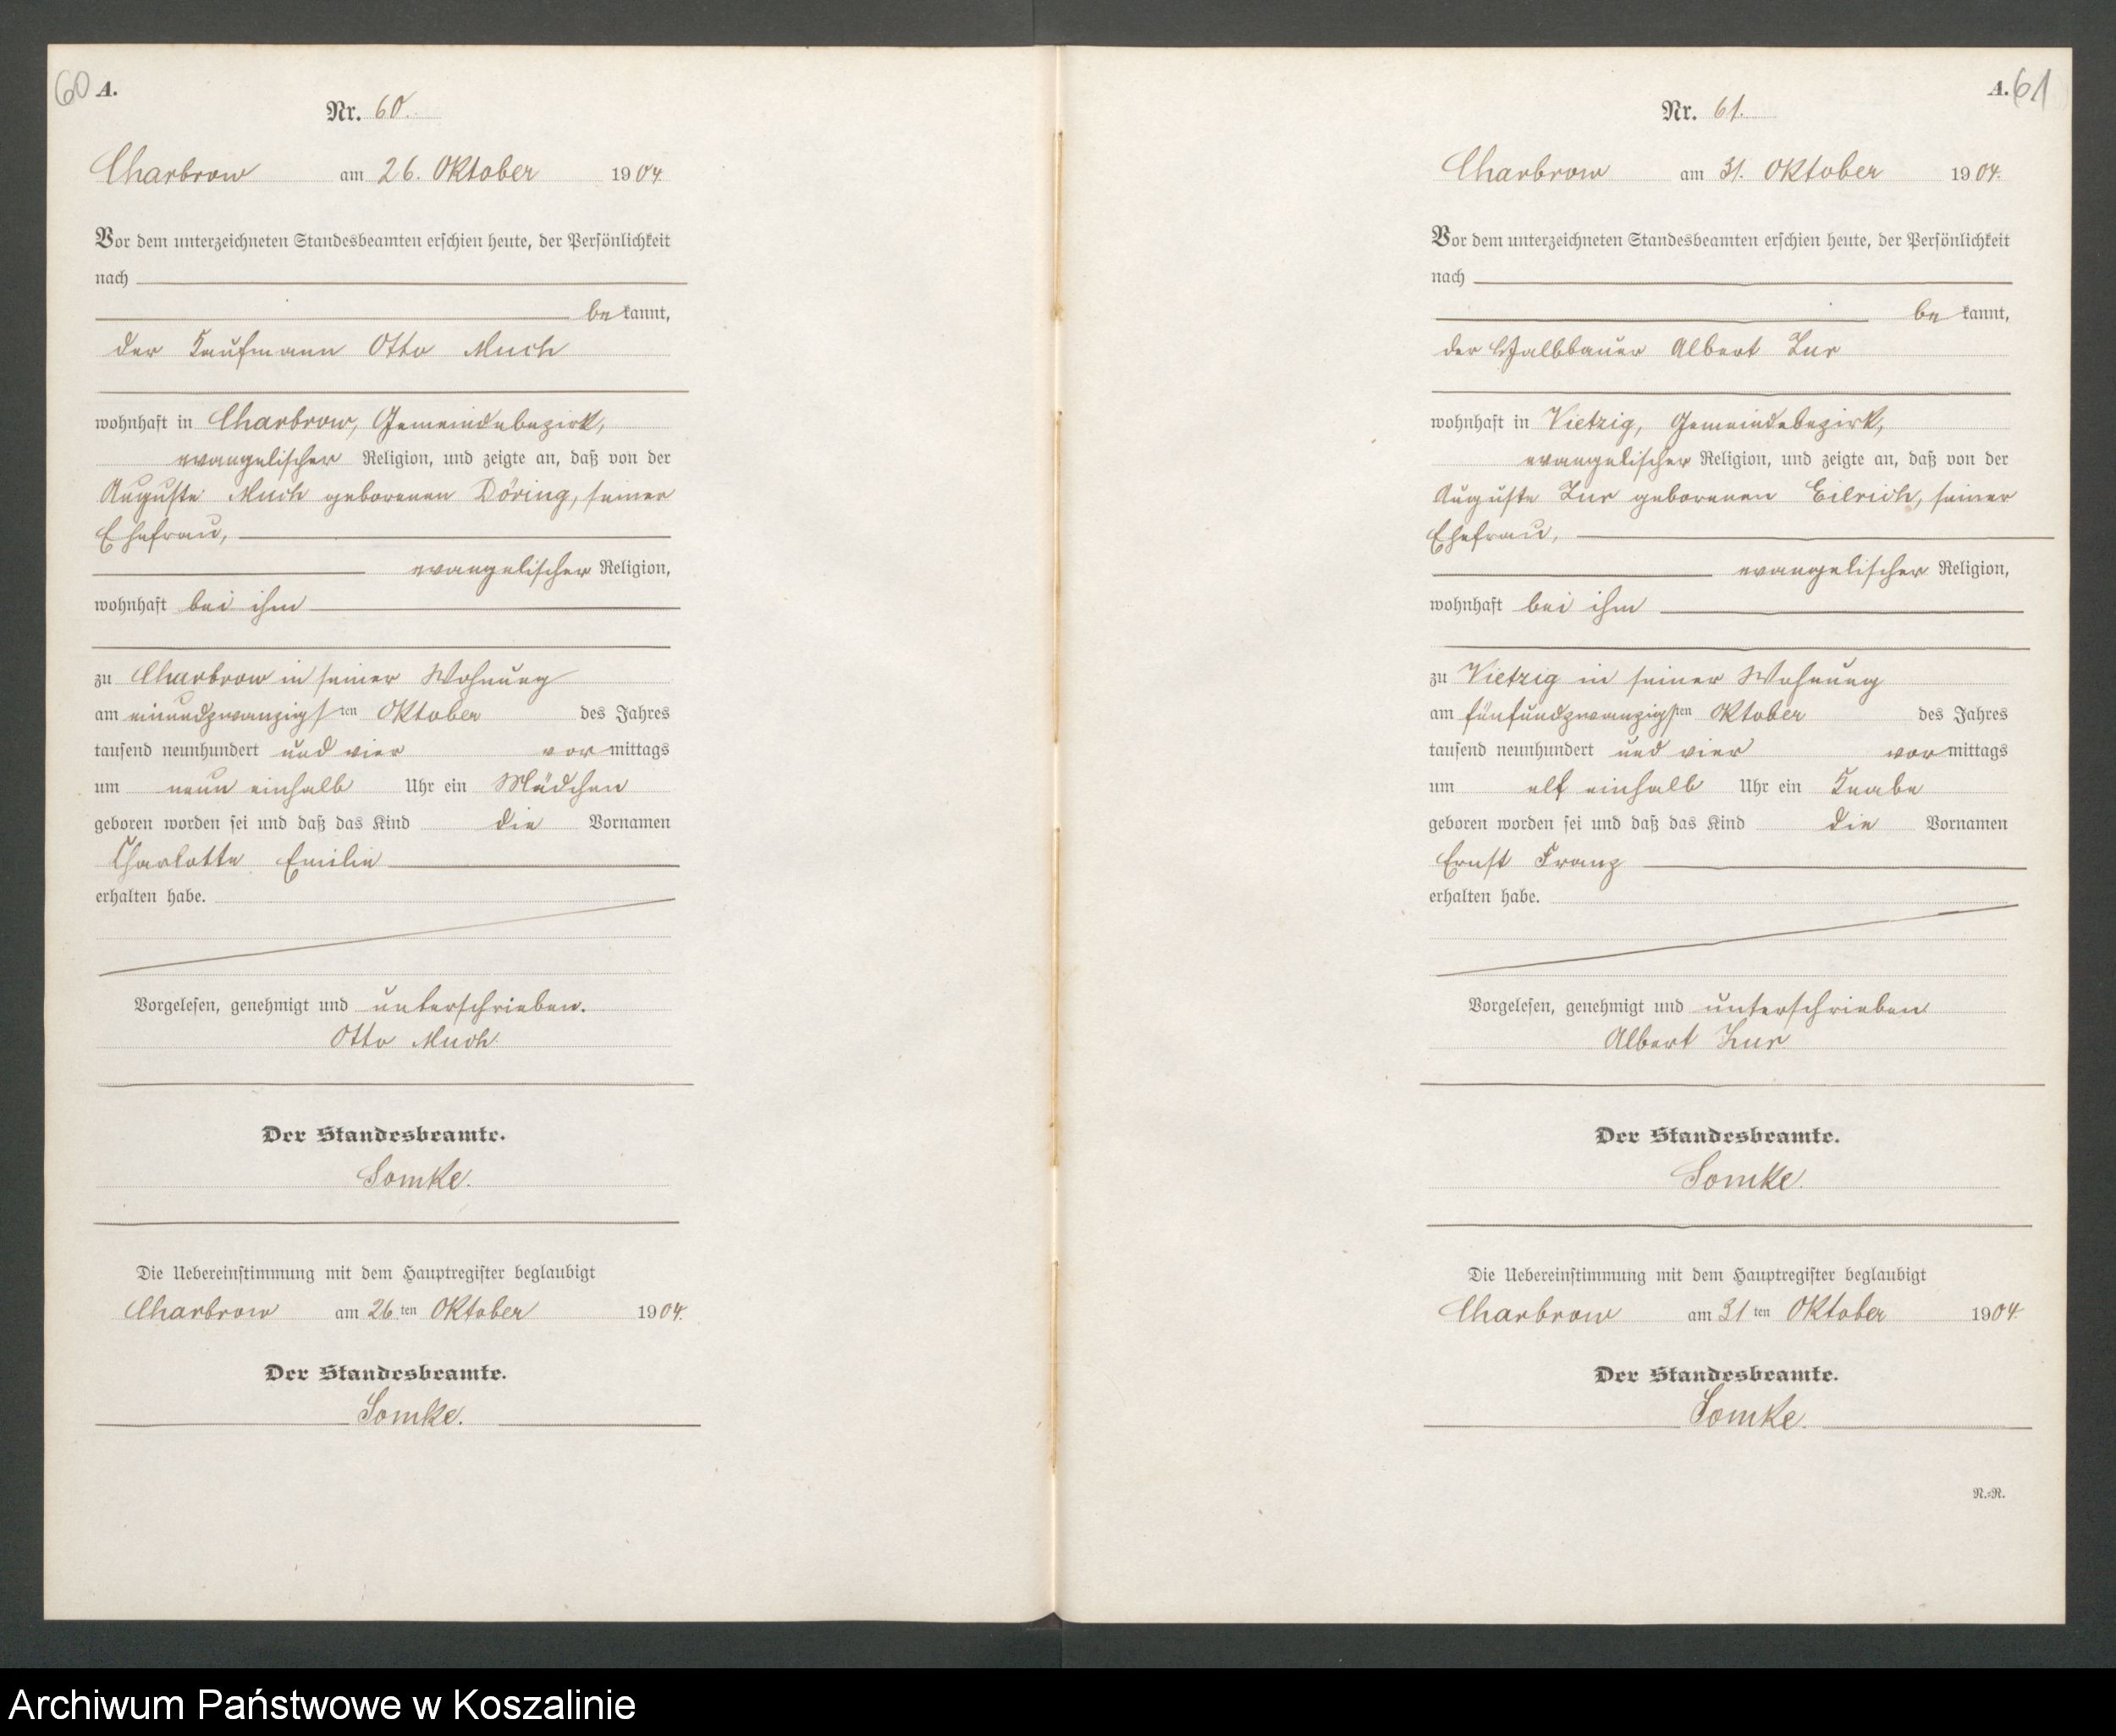 60 A.
Nr. 60.
Charbrow am 26. Oktober 1904.
Vor dem unterzeichneten Standesbeamten erschien heute, der Persönlichkeit
nach
bekannt,
der Kaufmann Otto Much
wohnhaft in Charbrow, Gemeindebezirk,
evangelischer Religion, und zeigte an, daß von der
Auguste Much geborenen Döring, seiner
Ehefrau,
evangelischer Religion,
wohnhaft bei ihm
zu Charbrow in seiner Wohnung
am einundzwanzigsten Oktober des Jahres
tausend neunhundert und vier vormittags
um neun einhalb Uhr ein Mädchen
geboren worden sei und daß das Kind die Vornamen
Charlotte Emilie
erhalten habe.
Vorgelesen, genehmigt und unterschrieben.
Otto Much.
Der Standesbeamte.
Somke.
Die Uebereinstimmung mit dem Hauptregister beglaubigt
Charbrow am 26ten Oktober 1904.
Der Standesbeamte.
Somke.
A. 61
Nr. 61.
Charbrow am 31. Oktober 1904.
Vor dem unterzeichneten Standesbeamten erschien heute, der Persönlichkeit
nach
bekannt,
der Halbbauer Albert Zur
wohnhaft in Vietzig, Gemeindebezirk,
evangelischer Religion, und zeigte an, daß von der
Auguste Zur geborenen Eilrich, seiner
Ehefrau,
evangelischer Religion,
wohnhaft bei ihm
zu Vietzig in seiner Wohnung
am fünfundzwanzigsten Oktober des Jahres
tausend neunhundert und vier vormittags
um elf einhalb Uhr ein Knabe
geboren worden sei und daß das Kind die Vornamen
Ernst Franz
erhalten habe.
Vorgelesen, genehmigt und unterschrieben
Albert Zur
Der Standesbeamte.
Somke.
Die Uebereinstimmung mit dem Hauptregister beglaubigt
Charbrow am 31ten Oktober 1904.
Der Standesbeamte.
Somke.
N.=R.
Archiwum Państwowe w Koszalinie